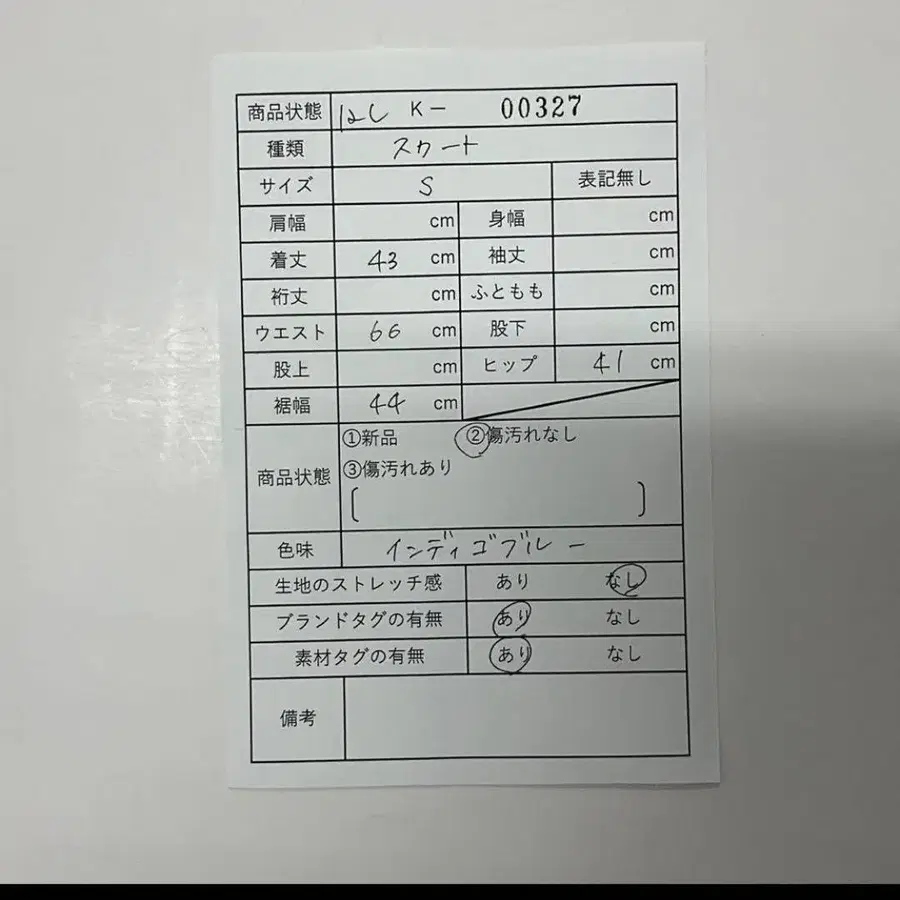 商品状態 はし K- 00327
種類 スカート
サイズ S 表記無し
肩幅 cm 身幅 cm
着丈 43 cm 袖丈 cm
裄丈 cm ふともも cm
ウエスト 66 cm 股下 cm
股上 cm ヒップ 41 cm
裾幅 44 cm
商品状態 ①新品 ②傷汚れなし
③傷汚れあり
[ ]
色味 インディゴブルー
生地のストレッチ感 あり なし
ブランドタグの有無 あり なし
素材タグの有無 あり なし
備考